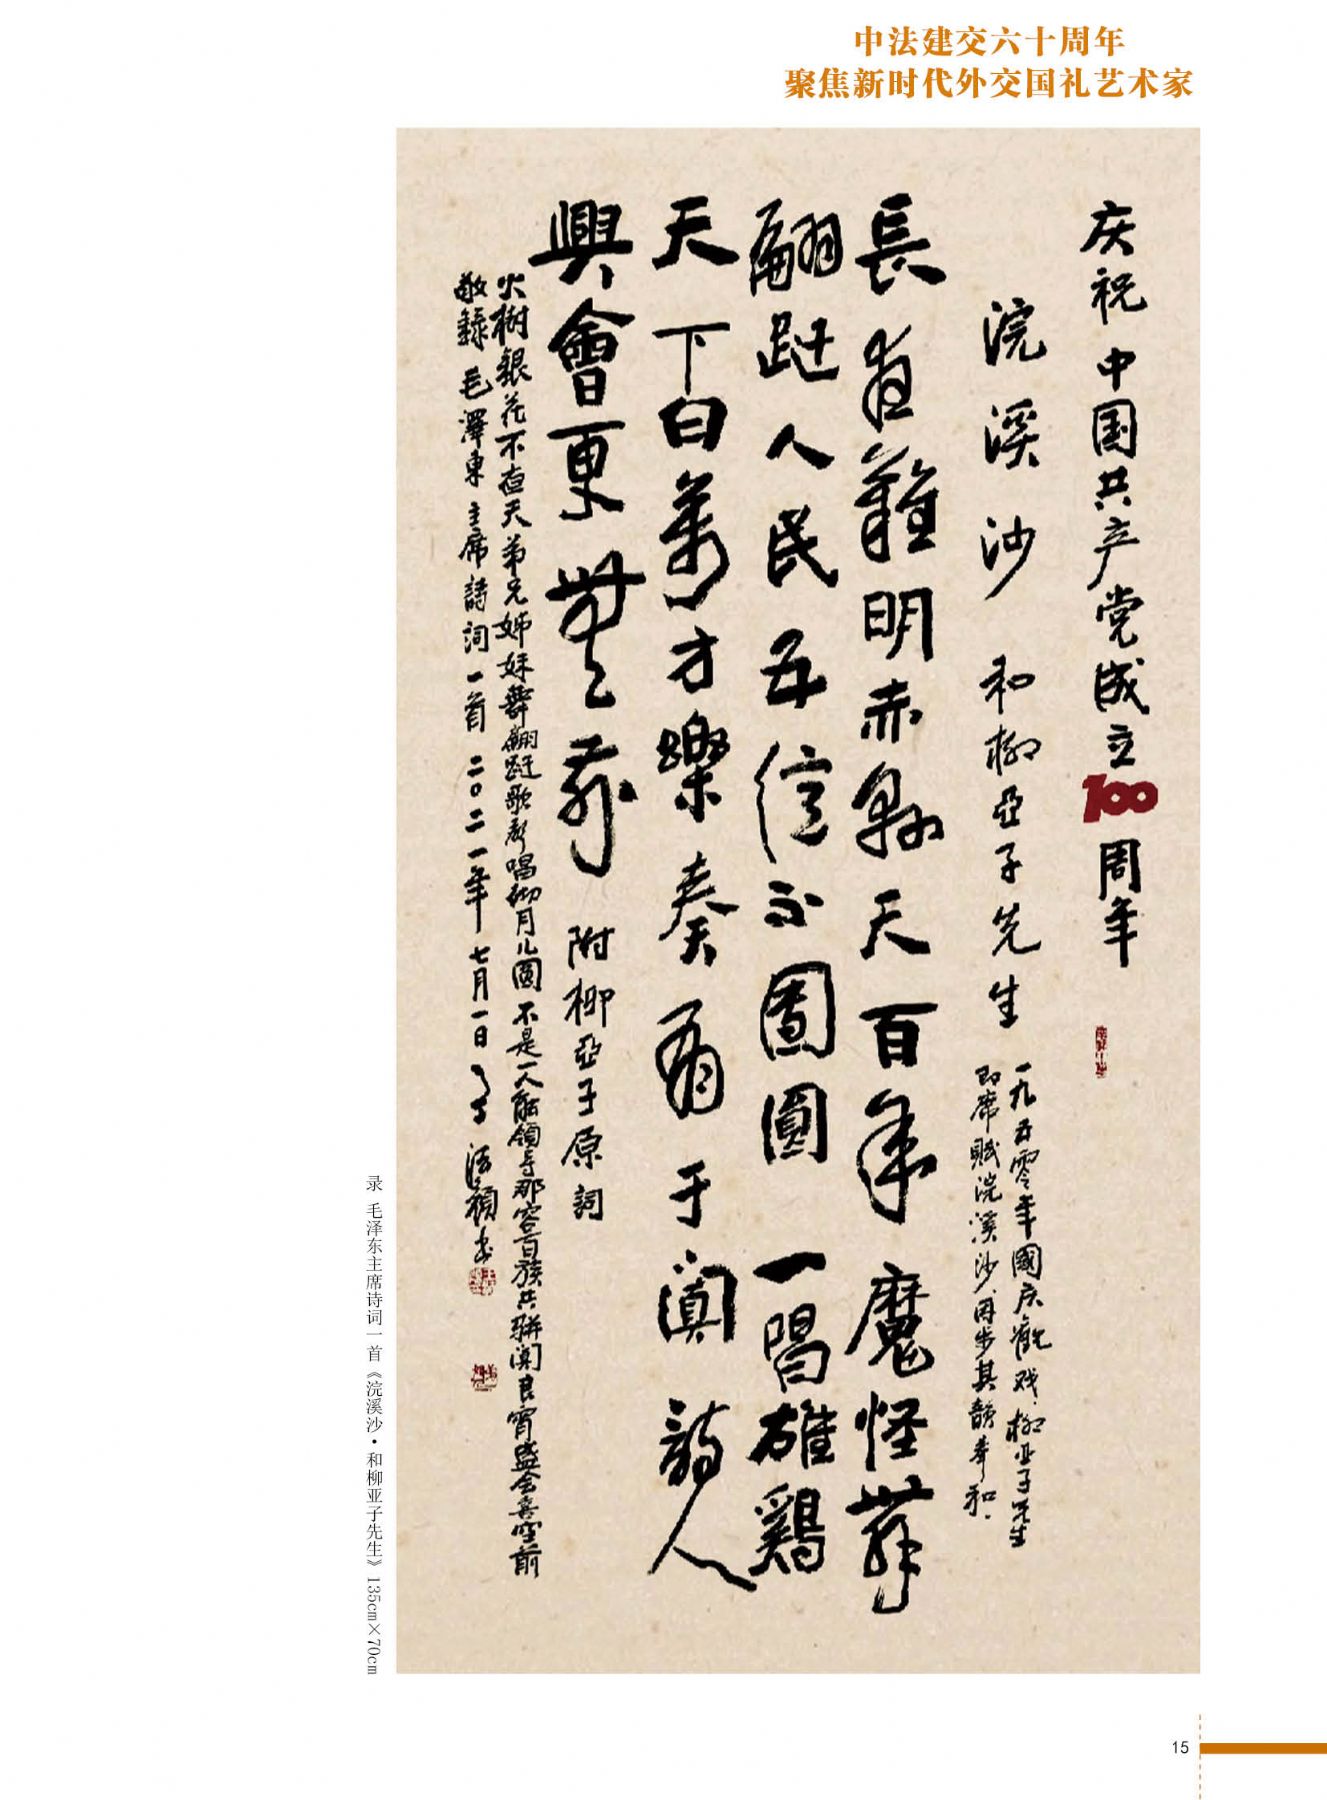 中法建交六十周年
聚焦新时代外交国礼艺术家
庆祝中国共产党成立100周年
浣溪沙 和柳亞子先生
一九五零年國庆觀戏柳亚子先生
即席赋浣溪沙因步其韻奉和
長夜難明赤縣天百年魔怪舞
翩跹人民五億不團圓 一唱雄鷄
天下白萬方樂奏有于阗 詩人
興會更無前 附柳亞子原詞
火樹銀花不夜天弟兄姊妹舞翩跹歌聲唱彻月儿圓 不是一人能領导那容百族共骈阗良宵盛会喜空前
敬錄毛澤東主席詩词一首 二〇二一年七月一日
录 毛泽东主席诗词一首《浣溪沙·和柳亚子先生》135cm×70cm
15